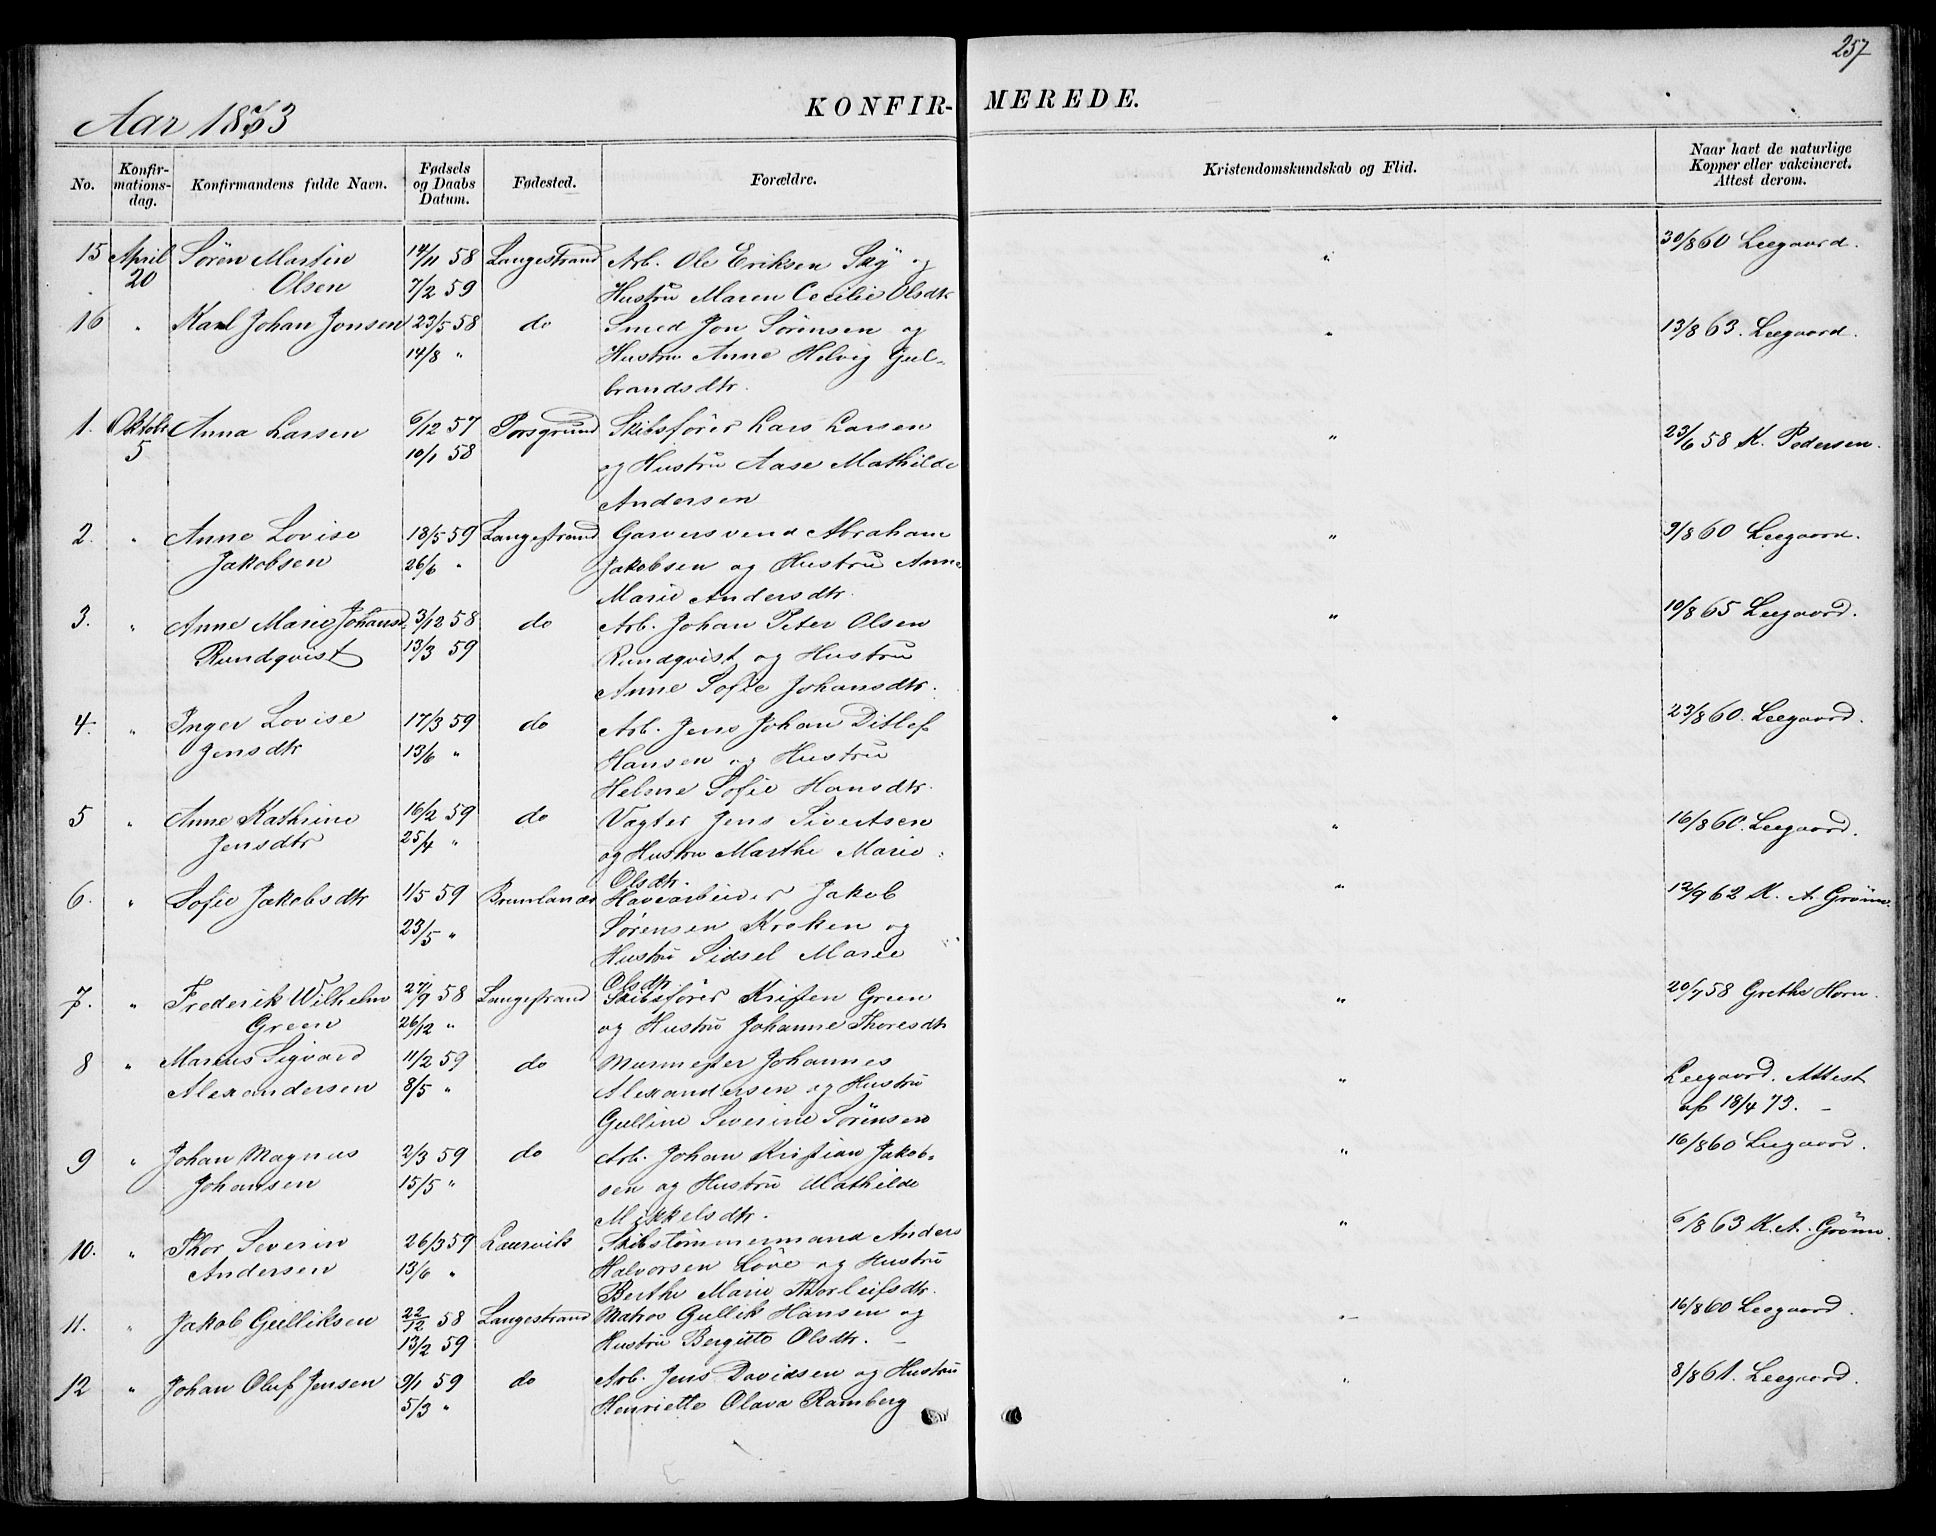 257
Aar 1873
KONFIR- MEREDE.
No. Konfir-mations-dag. Konfirmandens fulde Navn. Fødsels og Daabs Datum. Fødested. Forældre. Kristendomskundskab og Flid. Naar havt de naturlige Kopper eller vakcineret. Attest derom.
15 April Søren Martin 14/11 58 Langestrand Arb. Ole Eriksen Sky og " 30/8 60 Leegaard.
20 Olsen 7/2 59 Hustru Maren Cecilie Olsdtr
16 " Karl Johan Jonsen 23/5 58 do Smed Jon Sørensen og " 13/8 63. Leegaard.
14/8 " Hustru Anne Helvig Gul-
brandsdtr.
1. Oktobr Anna Larsen 6/12 57 Porsgrund Skibsfører Lars Larsen " 23/6 58 K. Pedersen.
5 10/1 58 og Hustru Aase Mathilde
Andersen
2. " Anne Lovise 18/5 59 Langestrand Garversvend Abraham " 9/8 60 Leegaard.
Jakobsen 26/6 " Jakobsen og Hustru Anne
Marie Andersdtr.
3. " Anne Marie Johansd. 3/12 58 do Arb. Johan Peter Olsen " 10/8 65 Leegaard.
Rundqvist 13/3 59 Rundqvist og Hustru
Anne Sofie Johansdtr.
4. " Inger Lovise 17/3 59 do Arb. Jens Johan Ditlef " 23/8 60. Leegaard.
Jensdtr 13/6 " Hansen og Hustru
Helene Sofie Hansdtr.
5 " Anne Kathrine 16/2 59 do Vægter Jens Sivertsen " 16/8 60. Leegaard.
Jensdtr 25/4 " og Hustru Marthe Marie
Olsdtr.
6. " Sofie Jakobsdtr 1/5 59 Brunlanæs Havearbeider Jakob " 12/9 62 K. A. Grønn.
23/5 " Sørensen Kroken og
Hustru Sidsel Marie
Olsdtr
7. " Frederik Wilhelm 27/9 58 Langestrand Skibsfører Kristen Green " 20/7 58 Grethe Horn.
Green 26/12 " og Hustru Johanne Thoresdtr
8 " Marius Sigvard 11/2 59 do Murmester Johannes " Leegaard. Attest
Alexandersen 8/5 " Alexandersen og Hustru af 18/4 73. –
Gulline Severine Sørensen
9 " Johan Magnus 2/3 59 do Arb. Johan Kristian Jakob- " 16/8 60 Leegaard.
Johansen 15/5 " sen og Hustru Mathilde
Mikkelsdtr.
10. " Thor Severin 26/3 59 Laurvik Skibstømmermand Anders " 6/8 63 K. A. Grønn.
Andersen 13/6 " Halvorsen Løve og Hustru
Berthe Marie Thorleifsdtr.
11. " Jakob Gulliksen 22/12 58 Langestrand Matros Gullik Hansen og " 16/8 60 Leegaard.
13/2 59 Hustru Bergitte Olsdtr. –
12 " Johan Oluf Jensen 9/1 59 do Arb. Jens Davidsen og Hustru " 8/8 61. Leegaard.
5/3 " Henriette Olava Ramberg